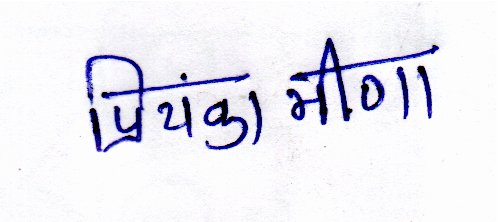 प्रियंका मीणा